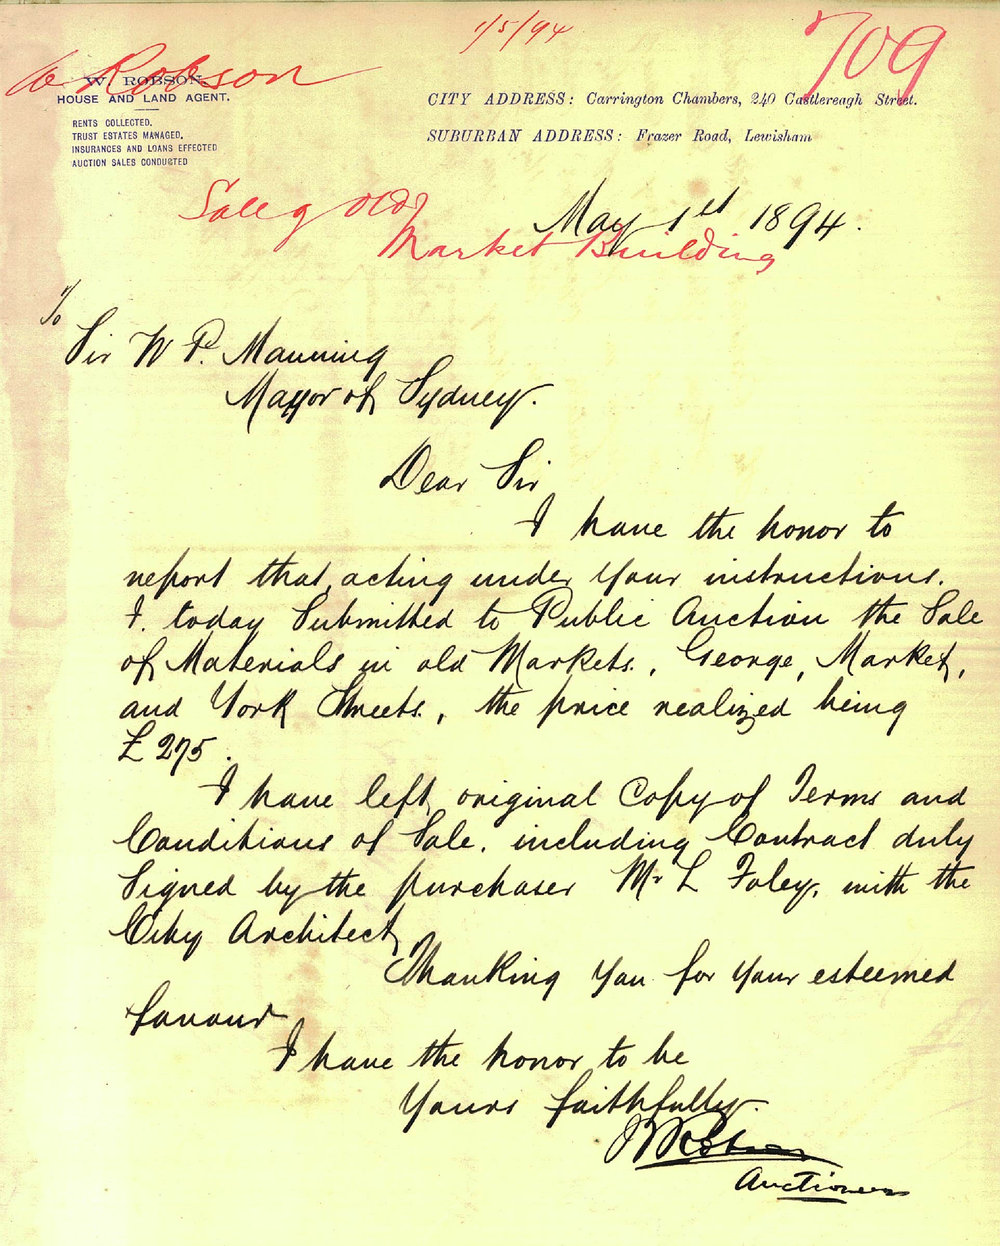 1/5/94
709
W Robson
W. ROBSON.
HOUSE AND LAND AGENT.
RENTS COLLECTED.
TRUST ESTATES MANAGED.
INSURANCES AND LOANS EFFECTED
AUCTION SALES CONDUCTED
CITY ADDRESS: Carrington Chambers, 240 Castlereagh Street.
SUBURBAN ADDRESS: Frazer Road, Lewisham
Sale of Old
Market Building
May 1st 1894.
To
Sir W P. Manning
Mayor of Sydney.
Dear Sir
I have the honor to
report that, acting under your instructions.
I. today Submitted to Public Auction the Sale
of Materials in old Markets., George, Market,
and York Streets., the price realized being
£275.
I have left, original Copy of Terms and
Conditions of Sale. including Contract duly
Signed by the purchaser Mr L Foley, with the
City Architect
Thanking you for your esteemed
favour
I have the honor to be
Yours faithfully.
W Robson
Auctioneer